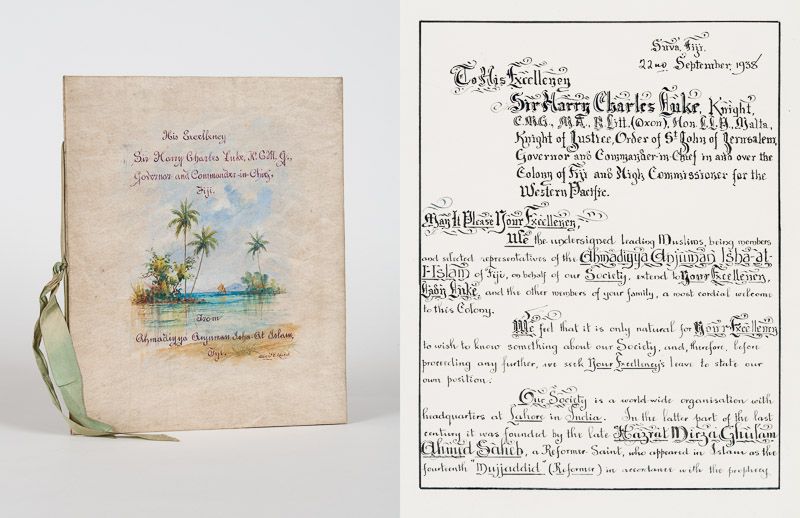 His Excellency
Sir Harry Charles Luke, K.C.M.G.,
Governor and Commander-in-Chief,
Fiji.
From
Ahmadiyya Anjuman Isha-At Islam,
Fiji.
Suva, Fiji.
22nd September, 1938
To His Excellency
Sir Harry Charles Luke, Knight,
C.M.G., M.A., B. Litt. (Oxon), Hon. L.L.D., Malta,
Knight of Justice, Order of St John of Jerusalem,
Governor and Commander-in-Chief in and over the
Colony of Fiji and High Commissioner for the
Western Pacific.
May It Please Your Excellency,
We the undersigned leading Muslims, being members
and selected representatives of the Ahmadiyya Anjuman Isha-at-
I-Islam of Fiji, on behalf of our Society, extend to Your Excellency,
Lady Luke, and the other members of your family, a most cordial welcome
to this Colony.
We feel that it is only natural for Your Excellency
to wish to know something about our Society, and, therefore, before
proceeding any further, we seek Your Excellency's leave to state our
own position.
Our Society is a world-wide organisation with
headquarters at Lahore in India. In the latter part of the last
century it was founded by the late Hazrat Mirza Ghulam
Ahmad Saheb, a Reformer Saint, who appeared in Islam as the
fourteenth "Mujjaddid" (Reformer) in accordance with the prophecy